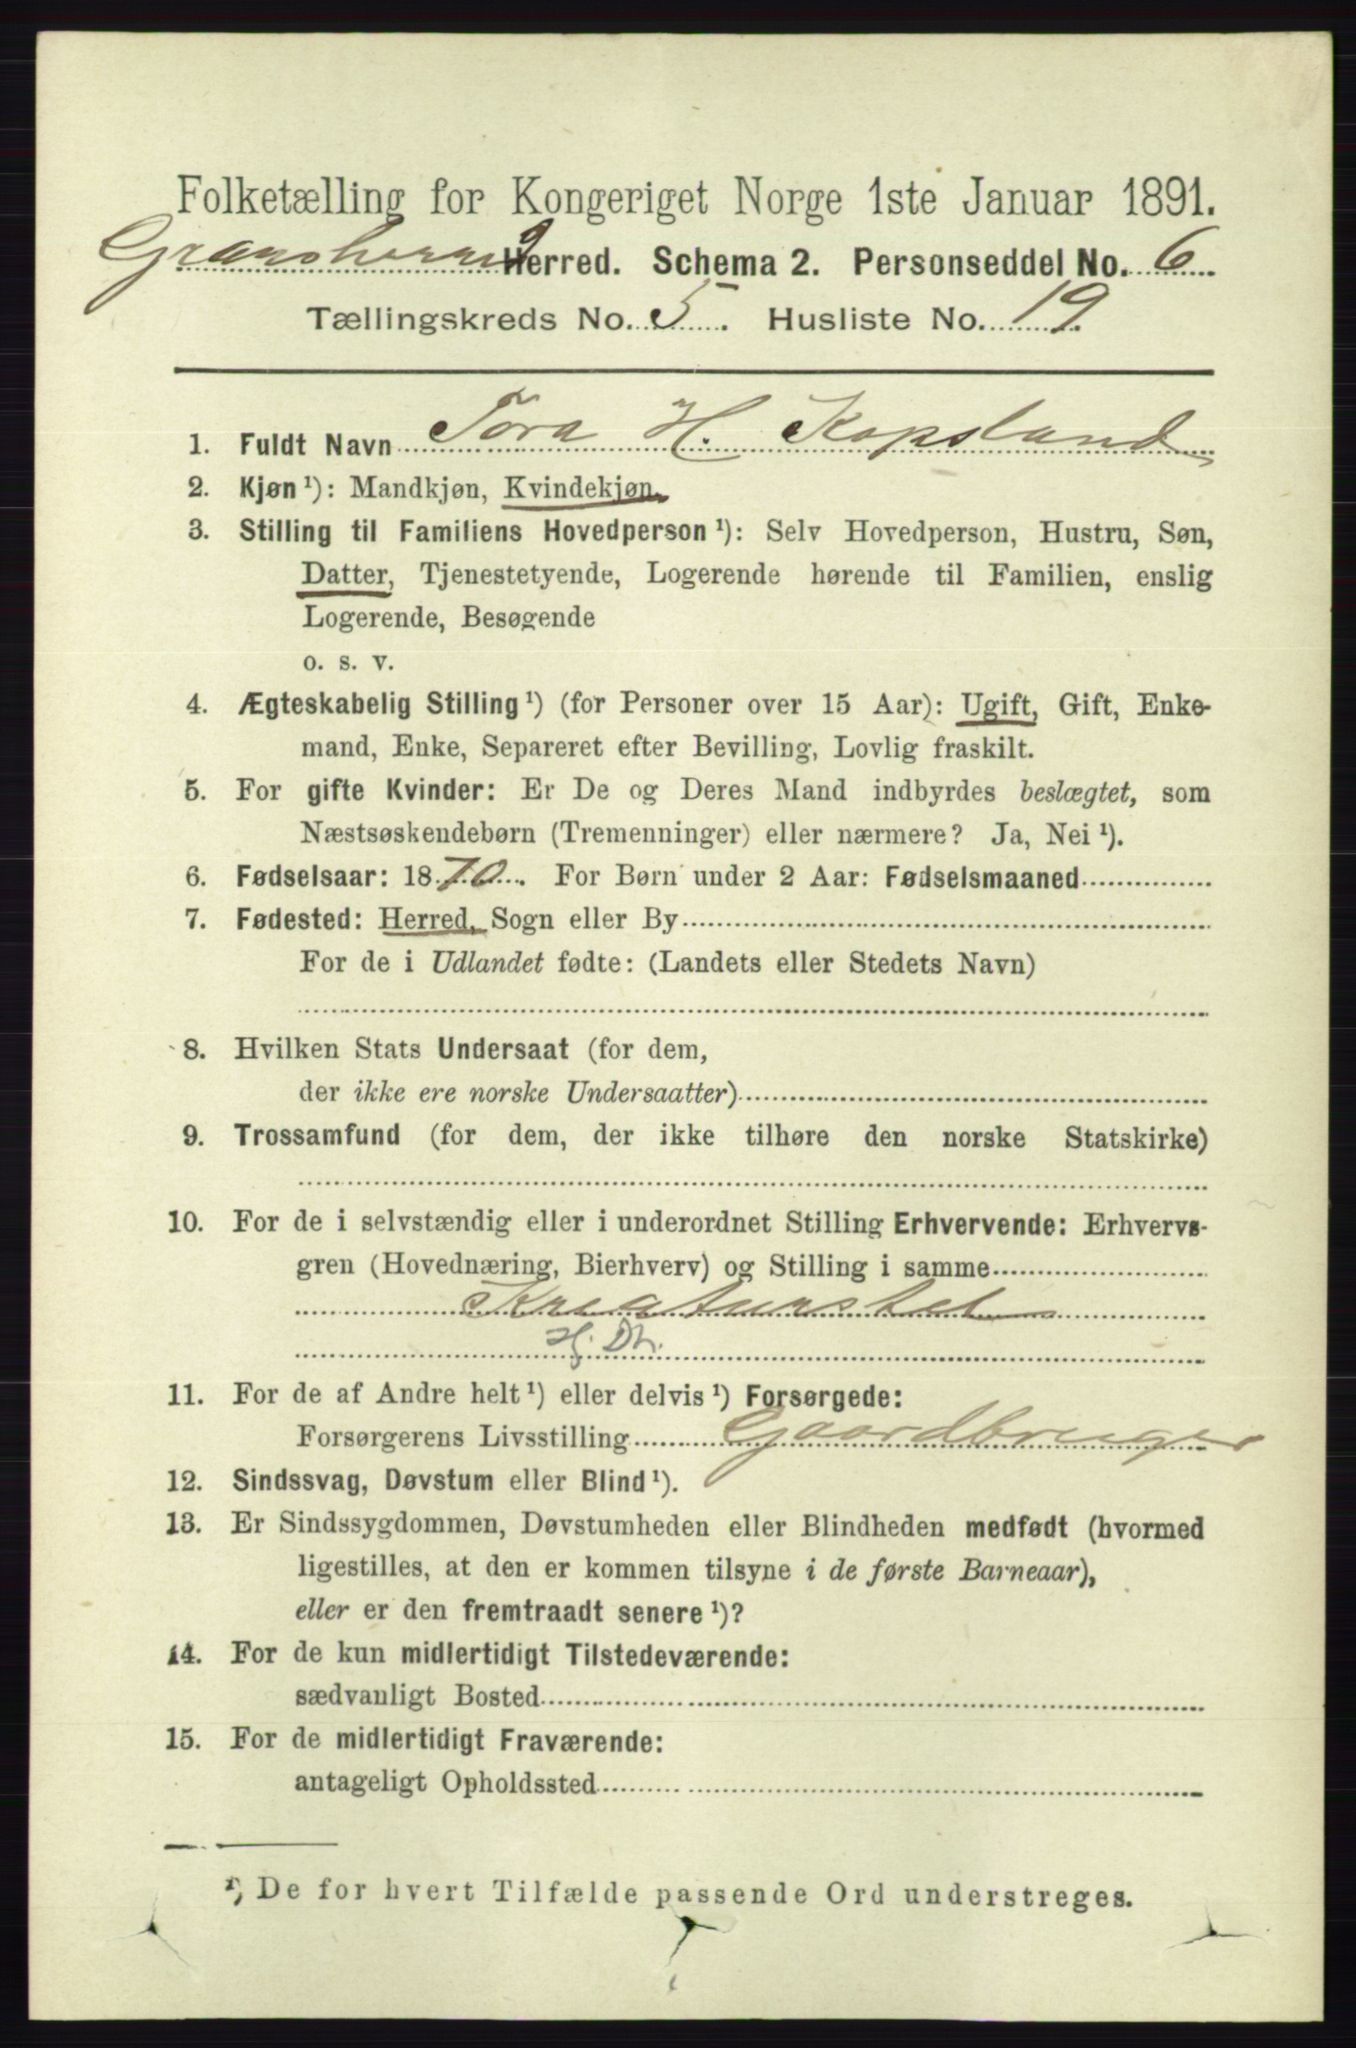 Folketælling for Kongeriget Norge 1ste Januar 1891.
Gransherred Herred. Schema 2. Personseddel No. 6
Tællingskreds No. 5. Husliste No. 19.
1. Fuldt Navn Tora H. Kopsland
2. Kjøn ¹): Mandkjøn, Kvindekjøn.
3. Stilling til Familiens Hovedperson ¹): Selv Hovedperson, Hustru, Søn,
Datter, Tjenestetyende, Logerende hørende til Familien, enslig
Logerende, Besøgende
o. s. v.
4. Ægteskabelig Stilling ¹) (for Personer over 15 Aar): Ugift, Gift, Enke-
mand, Enke, Separeret efter Bevilling, Lovlig fraskilt.
5. For gifte Kvinder: Er De og Deres Mand indbyrdes beslægtet, som
Næstsøskendebørn (Tremenninger) eller nærmere? Ja, Nei ¹).
6. Fødselsaar: 1870. For Børn under 2 Aar: Fødselsmaaned
7. Fødested: Herred, Sogn eller By
For de i Udlandet fødte: (Landets eller Stedets Navn)
8. Hvilken Stats Undersaat (for dem,
der ikke ere norske Undersaatter)
9. Trossamfund (for dem, der ikke tilhøre den norske Statskirke)
10. For de i selvstændig eller i underordnet Stilling Erhvervende: Erhvervs-
gren (Hovednæring, Bierhverv) og Stilling i samme
Kreaturstel
Hj. Dt.
11. For de af Andre helt ¹) eller delvis ¹) Forsørgede:
Forsørgerens Livsstilling Gaardbruger
12. Sindssvag, Døvstum eller Blind ¹).
13. Er Sindssygdommen, Døvstumheden eller Blindheden medfødt (hvormed
ligestilles, at den er kommen tilsyne i de første Barneaar),
eller er den fremtraadt senere ¹)?
14. For de kun midlertidigt Tilstedeværende:
sædvanligt Bosted
15. For de midlertidigt Fraværende:
antageligt Opholdssted
¹) De for hvert Tilfælde passende Ord understreges.